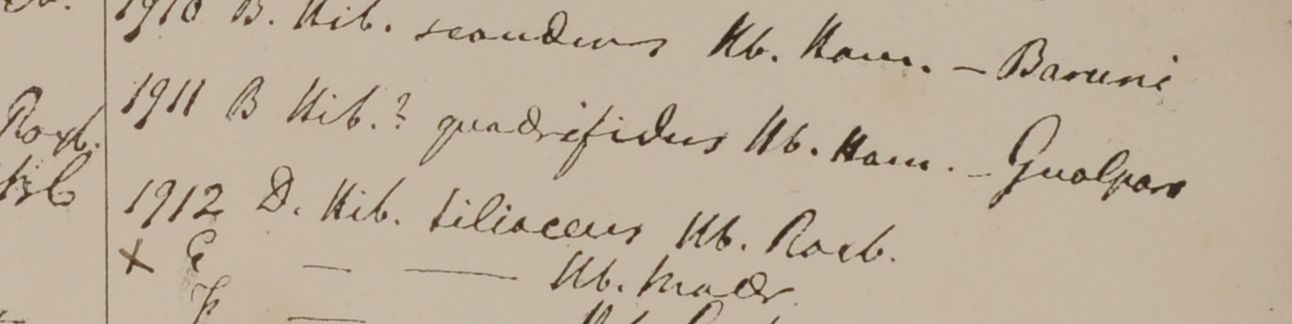 1910 B. Hib. scandens Hb. Ham. - Baruni
1911 B Hib.? quadrifidus Hb. Ham. - Gualpara
Roxb.
1912 D. Hib. tiliaceus Hb. Roxb.
x E — — Hb. Madr.
F —